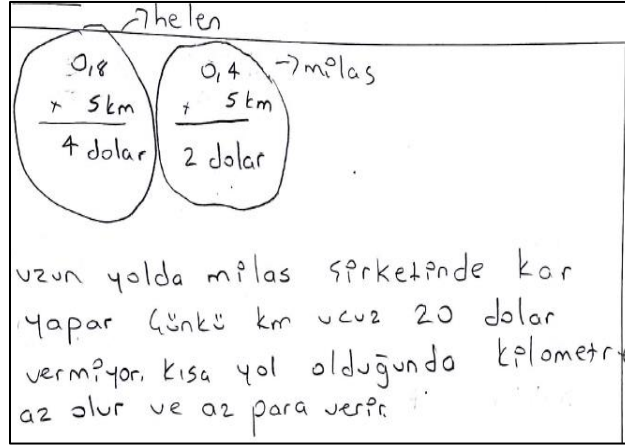 →helen
0,8
x 5km
4 dolar
0,4 →milas
x 5km
2 dolar
uzun yolda milas şirketinde kar
yapar Çünkü km ucuz 20 dolar
vermiyor. Kısa yol olduğunda kilometry
az olur ve az para verir.